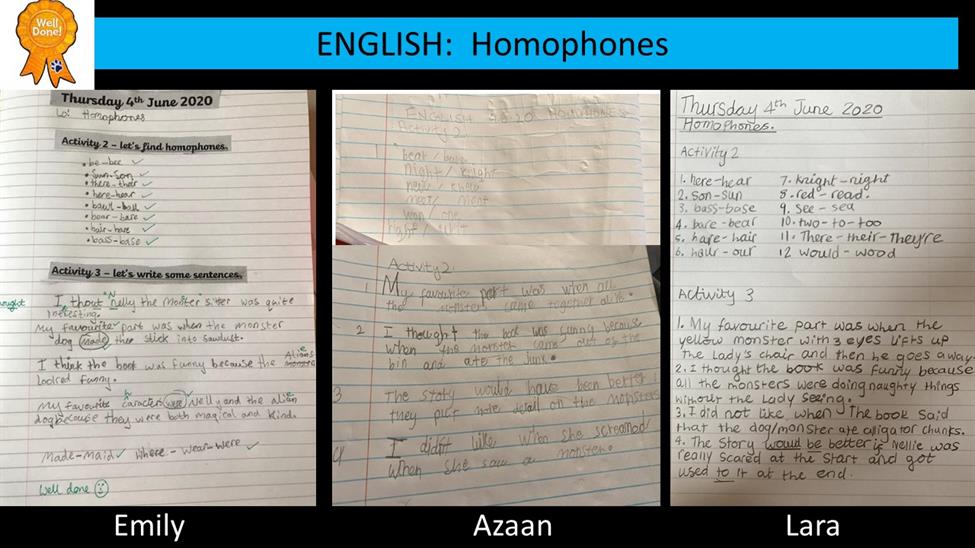 Well
Done!
ENGLISH: Homophones
Thursday 4th June 2020
Lo: Homophones
Activity 2 – let's find homophones.
• be-bee ✓
• Sun-Son ✓
• there-their ✓
• here-hear ✓
• bawl-ball ✓
• bear-bare ✓
• hair-hare ✓
• bass-base ✓
Activity 3 – let's write some sentences.
I thout nelly the monster sitter was quite
My favourite part was when the monster
dog made thee stick into sawdust.
I think the book was funny because the Aliens
looked funny.
My favourite caracters were Nelly and the alien
dog because they were both magical and kind.
Made-maid ✓ Where-wear-were ✓
Well done
ENGLISH HOMOPHONES
Activity 2
bear / bare
night / knight
new / knew
meet / meat
won / one
right /
Activity 2
1 My favourite part was when all
the monsters came together
2 I thought the book was funny because
when the monster came out of the
bin and ate the junk.
3 The story would have been better
they put more detail on the monsters
4 I didn't like when she screamed
when she saw a monster.
Thursday 4th June 2020
Homophones.
Activity 2
1. here-hear 7. knight-night
2. son-sun 8. red-read.
3. bass-base 9. see-sea
4. bare-bear 10. two-to-too
5. hare-hair 11. There-their-They're
6. hour-our 12 would-wood
Activity 3
1. My favourite part was when the
yellow monster with 3 eyes lifts up
the lady's chair and then he goes away.
2. I thought the book was funny because
all the monsters were doing naughty things
without the Lady seeing.
3. I did not like when The book said
that the dog/monster ate alligator chunks.
4. The Story would be better if Nellie was
really scared at the start and got
used to it at the end.
Emily
Azaan
Lara